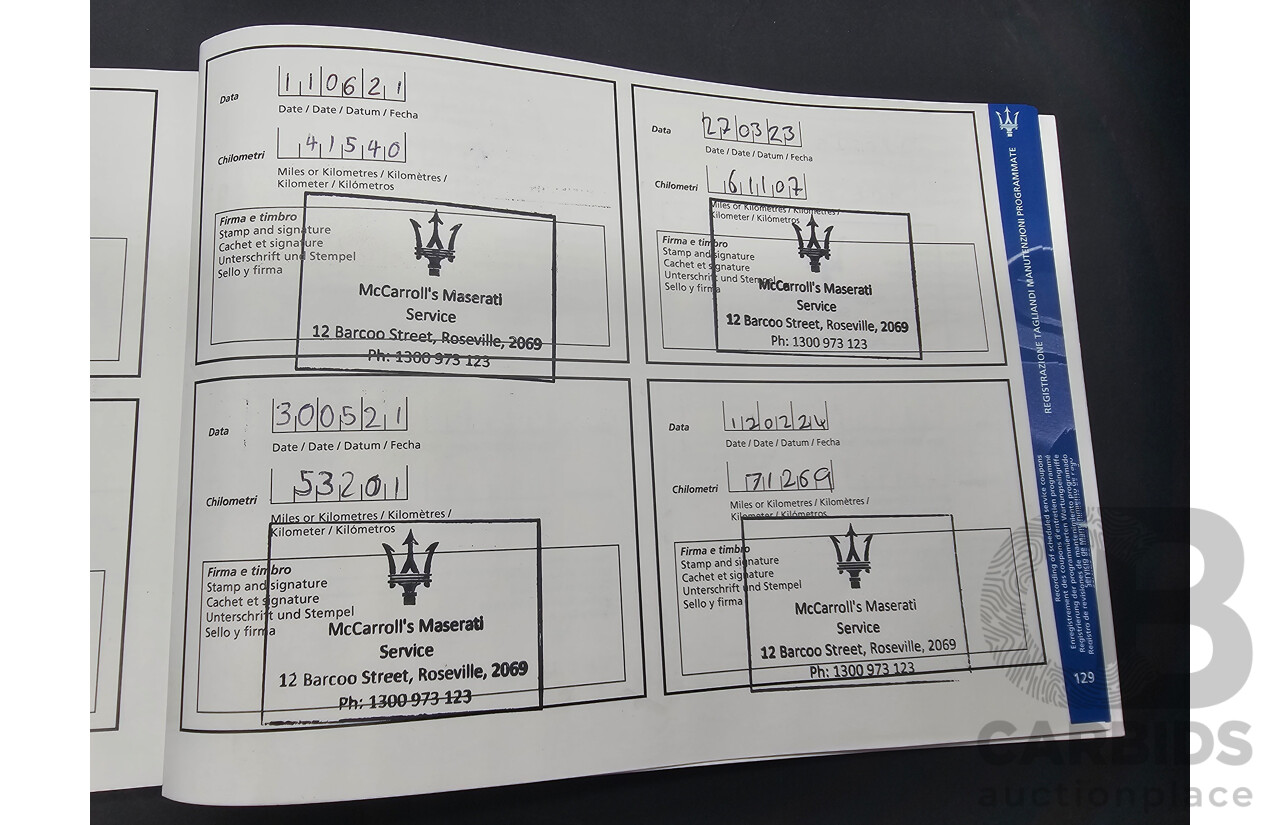 Data
110621
Date / Date / Datum / Fecha
Chilometri
41540
Miles or Kilometres / Kilomètres /
Kilometer / Kilómetros
Firma e timbro
Stamp and signature
Cachet et signature
Unterschrift und Stempel
Sello y firma
McCarroll's Maserati
Service
12 Barcoo Street, Roseville, 2069
Ph: 1300 973 123
Data
270323
Date / Date / Datum / Fecha
Chilometri
61107
Miles or Kilometres / Kilomètres /
Kilometer / Kilómetros
Firma e timbro
Stamp and signature
Cachet et signature
Unterschrift und Stempel
Sello y firma
McCarroll's Maserati
Service
12 Barcoo Street, Roseville, 2069
Ph: 1300 973 123
Data
300521
Date / Date / Datum / Fecha
Chilometri
53201
Miles or Kilometres / Kilomètres /
Kilometer / Kilómetros
Firma e timbro
Stamp and signature
Cachet et signature
Unterschrift und Stempel
Sello y firma
McCarroll's Maserati
Service
12 Barcoo Street, Roseville, 2069
Ph: 1300 973 123
Data
120224
Date / Date / Datum / Fecha
Chilometri
71269
Miles or Kilometres / Kilomètres /
Kilometer / Kilómetros
Firma e timbro
Stamp and signature
Cachet et signature
Unterschrift und Stempel
Sello y firma
McCarroll's Maserati
Service
12 Barcoo Street, Roseville, 2069
Ph: 1300 973 123
REGISTRAZIONE TAGLIANDI MANUTENZIONI PROGRAMMATE
Recording of scheduled service coupons
Enregistrement des coupons d'entretien programmé
Registrierung der programmierten Wartungseingriffe
Registro de revisiones de mantenimiento programado
129
CARBIDS
auctionplace